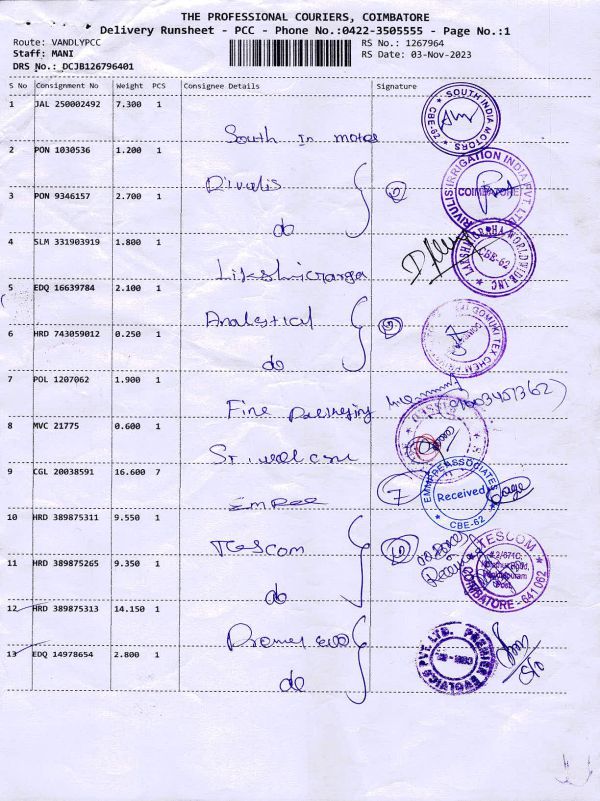 THE PROFESSIONAL COURIERS, COIMBATORE
Delivery Runsheet - PCC - Phone No.:0422-3505555 - Page No.:1
Route: VANDLYPCC
RS No.: 1267964
Staff: MANI
RS Date: 03-Nov-2023
DRS No.: DCJB126796401
S No Consignment No Weight PCS Consignee Details Signature
1 JAL 250002492 7.300 1
South In motors
SOUTH INDIA MOTORS CBE-29
2 PON 1030536 1.200 1
Rivulis
RIVULIS IRRIGATION INDIA PVT. LTD. COIMBATORE
3 PON 9346157 2.700 1
do
4 SLM 331903919 1.800 1
WORLDWIDE INC CBE-62
5 EDQ 16639784 2.100 1
Analytical
GOMUKI TEX CHEM
6 HRD 743059012 0.250 1
do
7 POL 1207062 1.900 1
Fine packaging
8 MVC 21775 0.600 1
9 CGL 20038591 16.600 7
Empee
7
ASSOCIATES Received CBE-62
10 HRD 389875311 9.550 1
Tescom
TESCOM COIMBATORE - 641 062
11 HRD 389875265 9.350 1
do
12 HRD 389875313 14.150 1
Premier evo
PREMIER EVOLVICS PVT. LTD.
13 EDQ 14978654 2.800 1
do